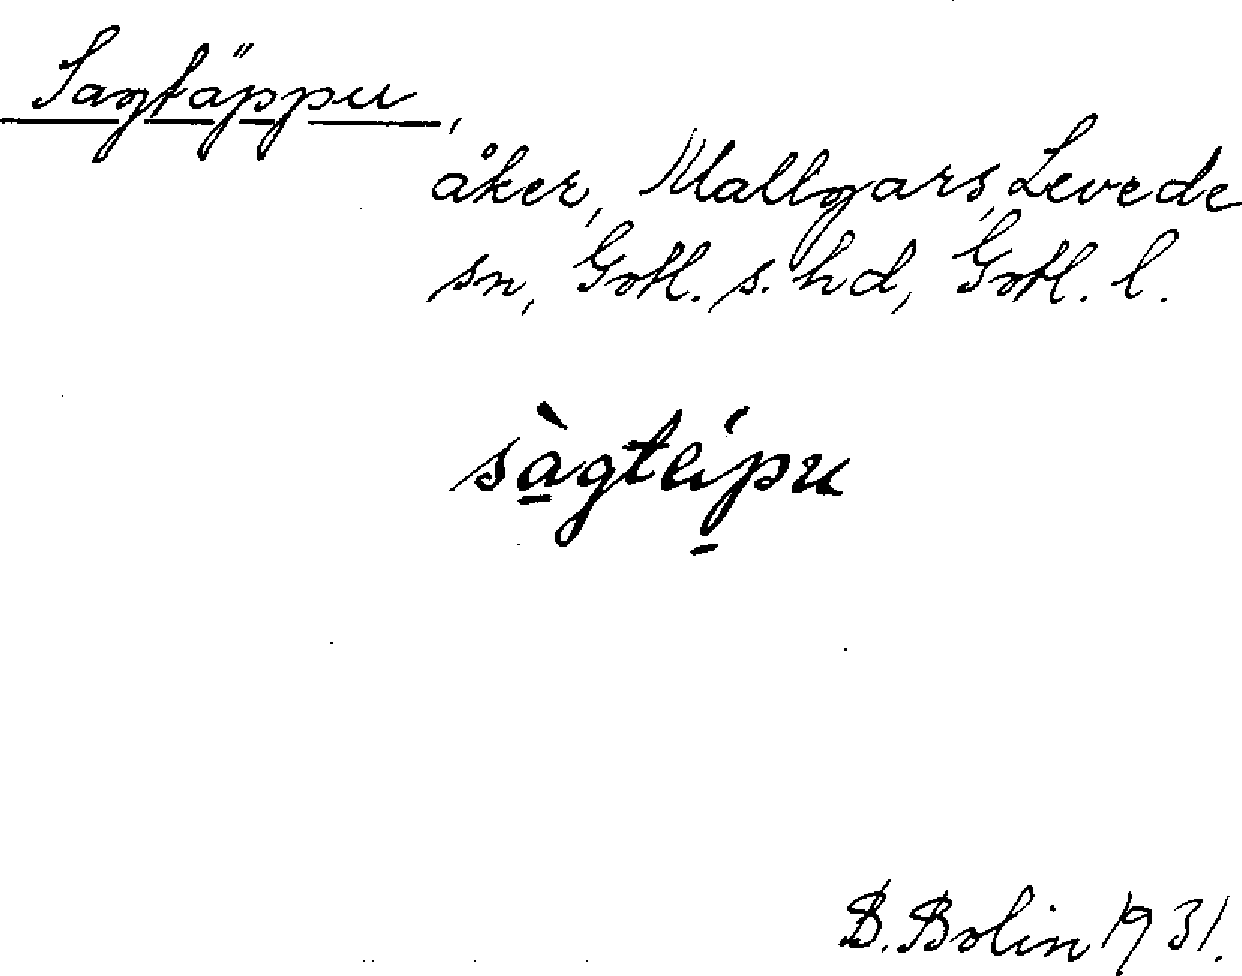 Sagtäppu,
åker, Mallgars, Levede
sn, Gotl. s. hd, Gotl. l.
sàgteípu
B. Bolin 1931.